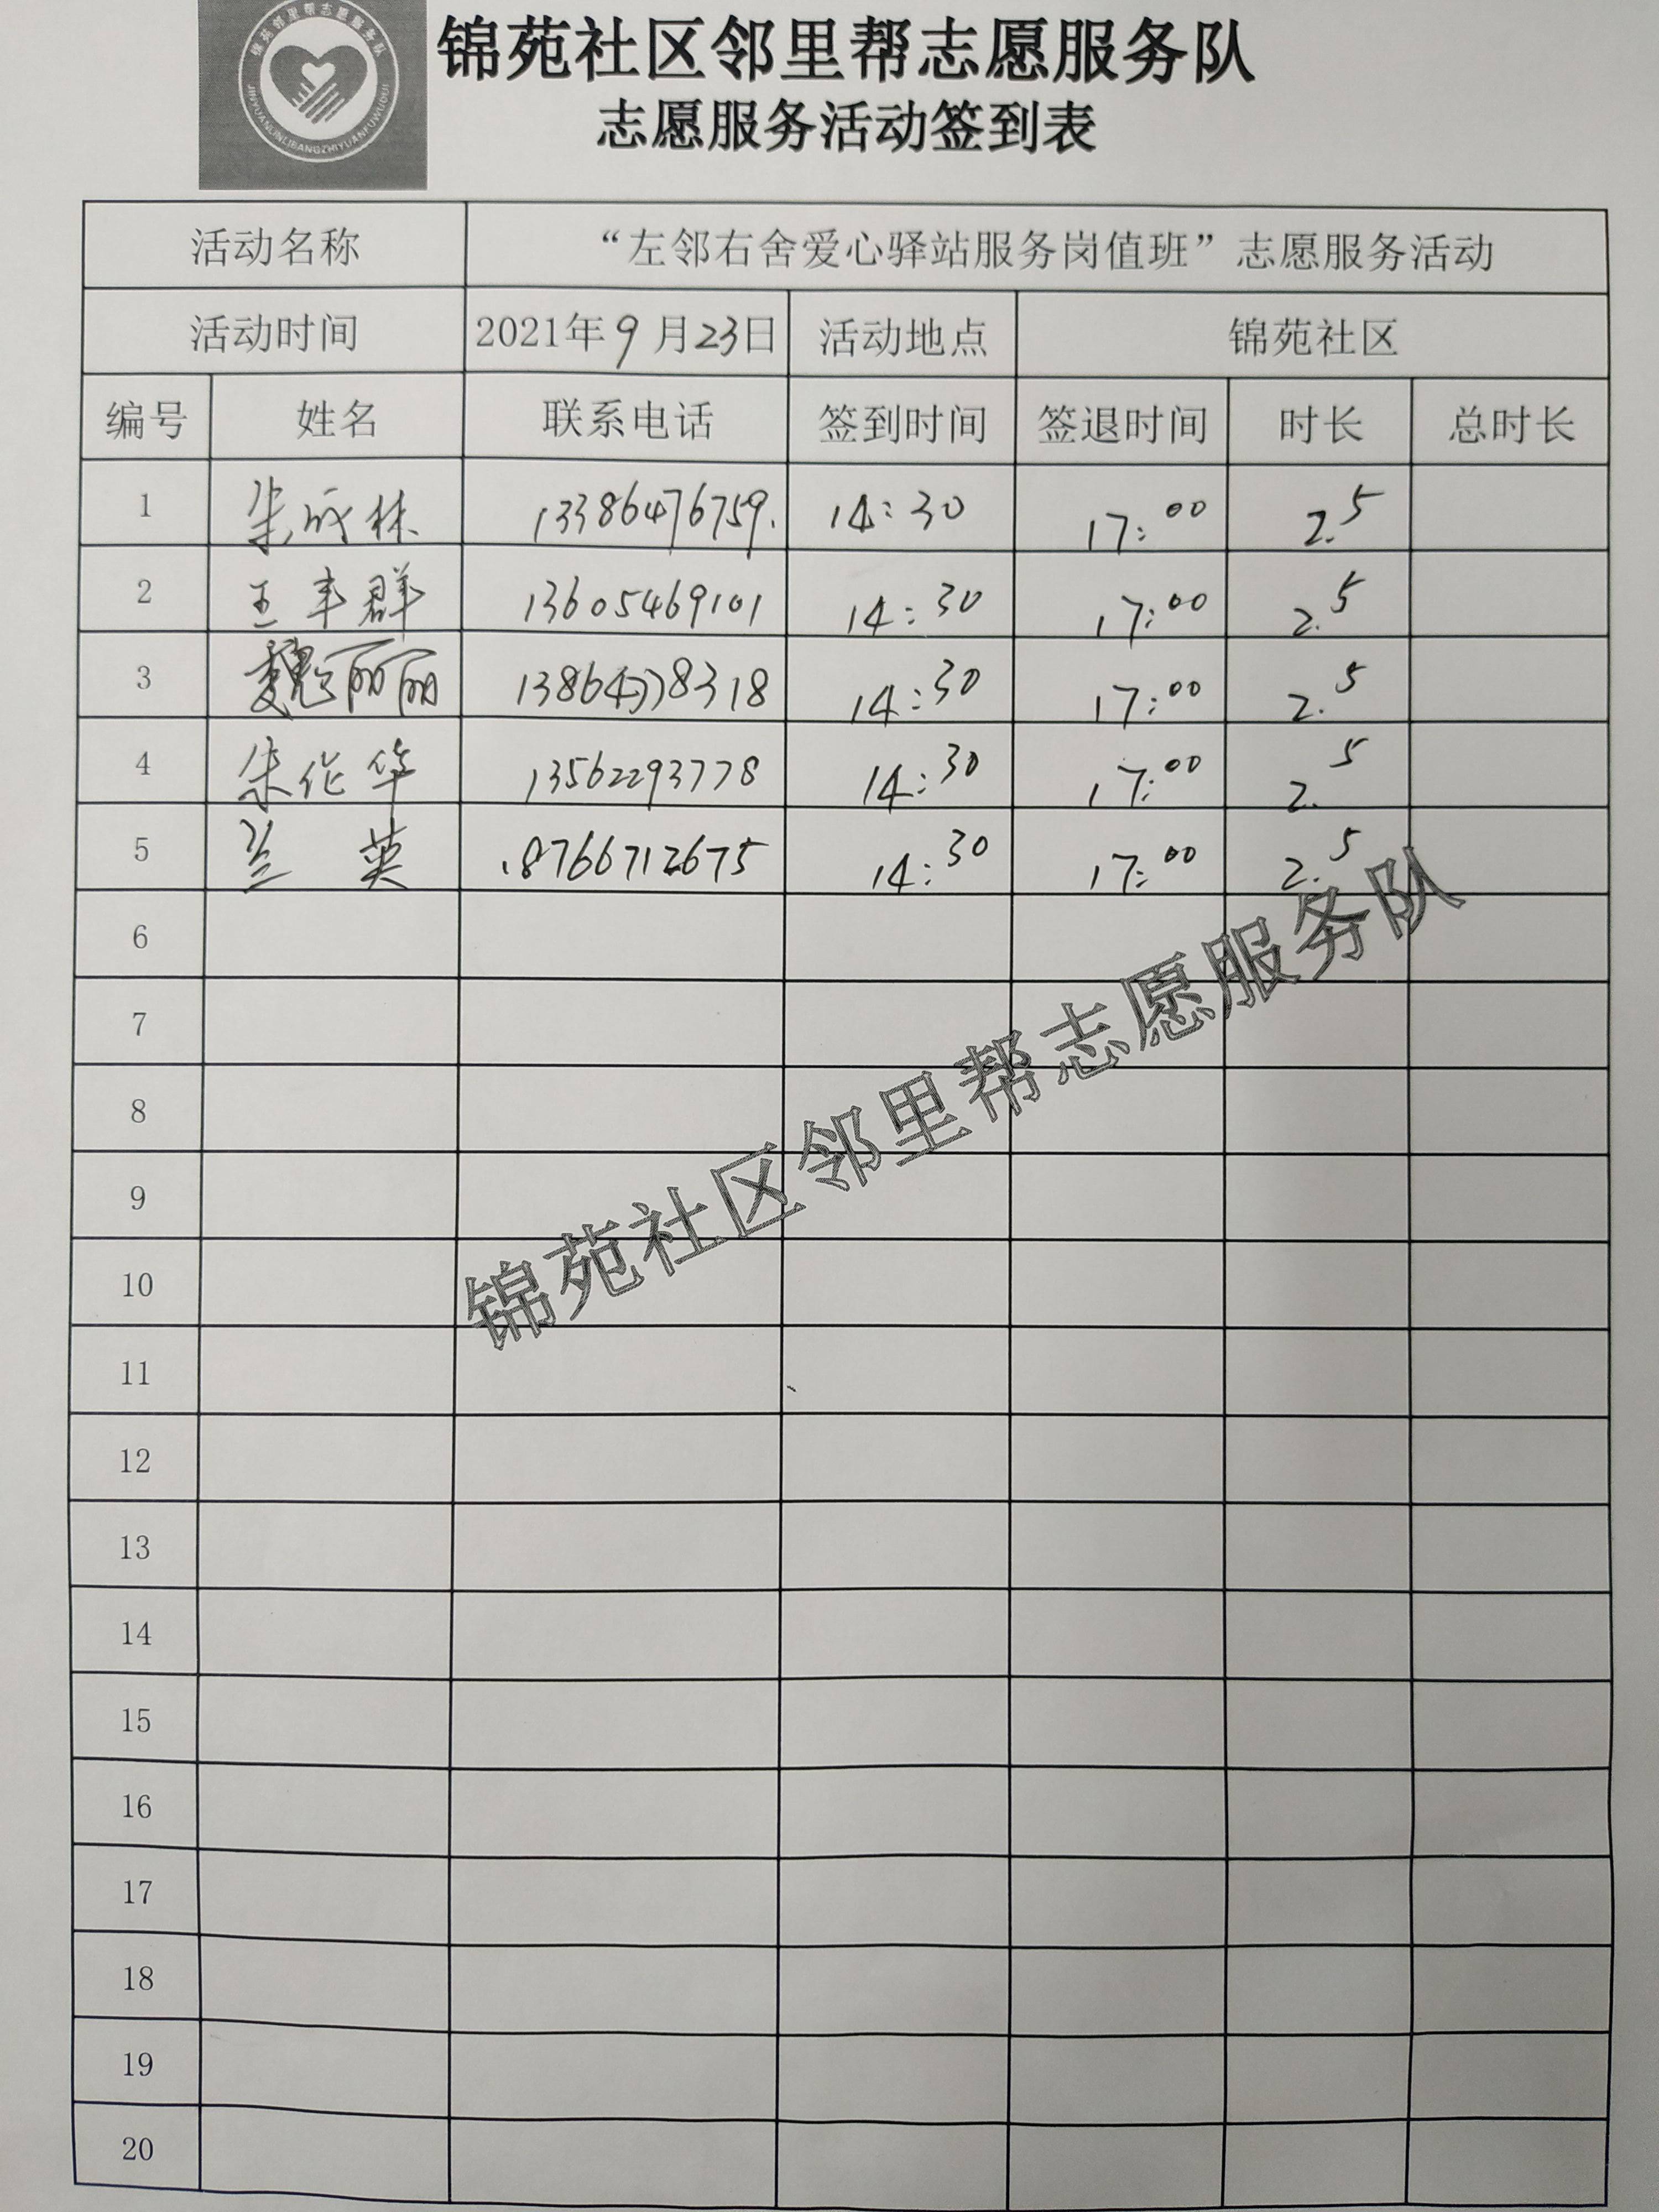 锦苑邻里帮志愿服务队
JINYUANLINLIBANGZHIYUANFUWUDUI
锦苑社区邻里帮志愿服务队
志愿服务活动签到表
活动名称 “左邻右舍爱心驿站服务岗值班”志愿服务活动
活动时间 2021年9月23日 活动地点 锦苑社区
编号 姓名 联系电话 签到时间 签退时间 时长 总时长
1 朱成林 13386476759. 14:30 17:00 2.5
2 王丰群 13605469101 14:30 17:00 2.5
3 魏丽丽 14:30 17:00 2.5
4 朱作华 13562293778 14:30 17:00 2.5
5 兰英 18766712675 14:30 17:00 2.5
6
7
8
9
10
11
12
13
14
15
16
17
18
19
20
锦苑社区邻里帮志愿服务队